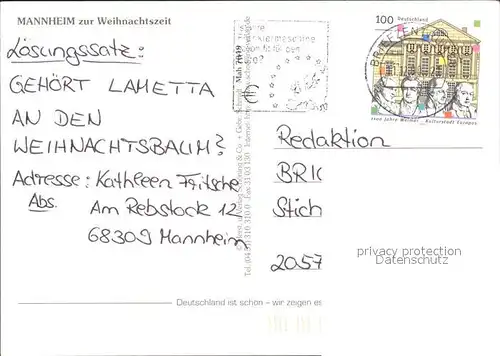 MANNHEIM zur Weihnachtszeit
Lösungssatz:
GEHÖRT LAMETTA
AN DEN
WEIHNACHTSBAUM?
Adresse: Kathleen Fritsche
Abs. Am Rebstock 12
68309 Mannheim
Mah 7019
€
100 Deutschland
1100 Jahre Weimar Kulturstadt Europas
BRIEFZENTRUM
Redaktion
BRI
Stich
2057
privacy protection
Datenschutz
Deutschland ist schön – wir zeigen es